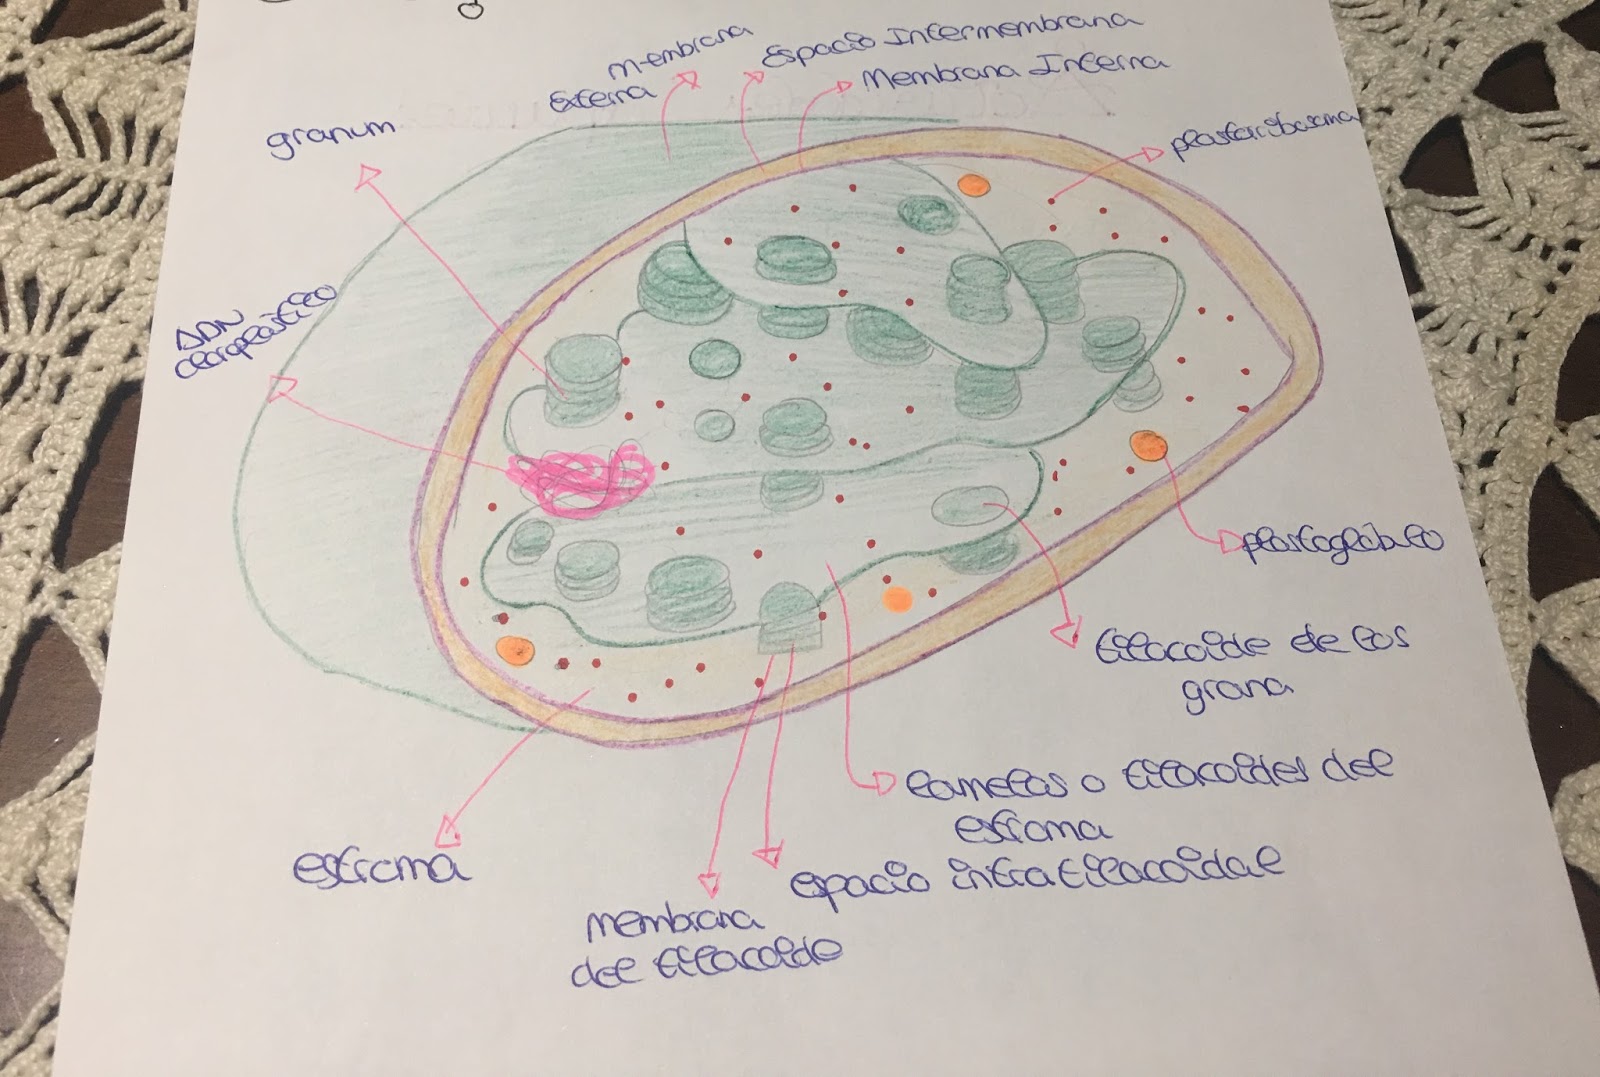 membrana
Externa
Espacio Intermembrana
Membrana Interna
granum
plastoribosoma
ADN
cloroplástico
plastoglóbulo
tilacoide de los
grana
lamelas o tilacoides del
estroma
espacio intratilacoidal
estroma
membrana
del tilacoide